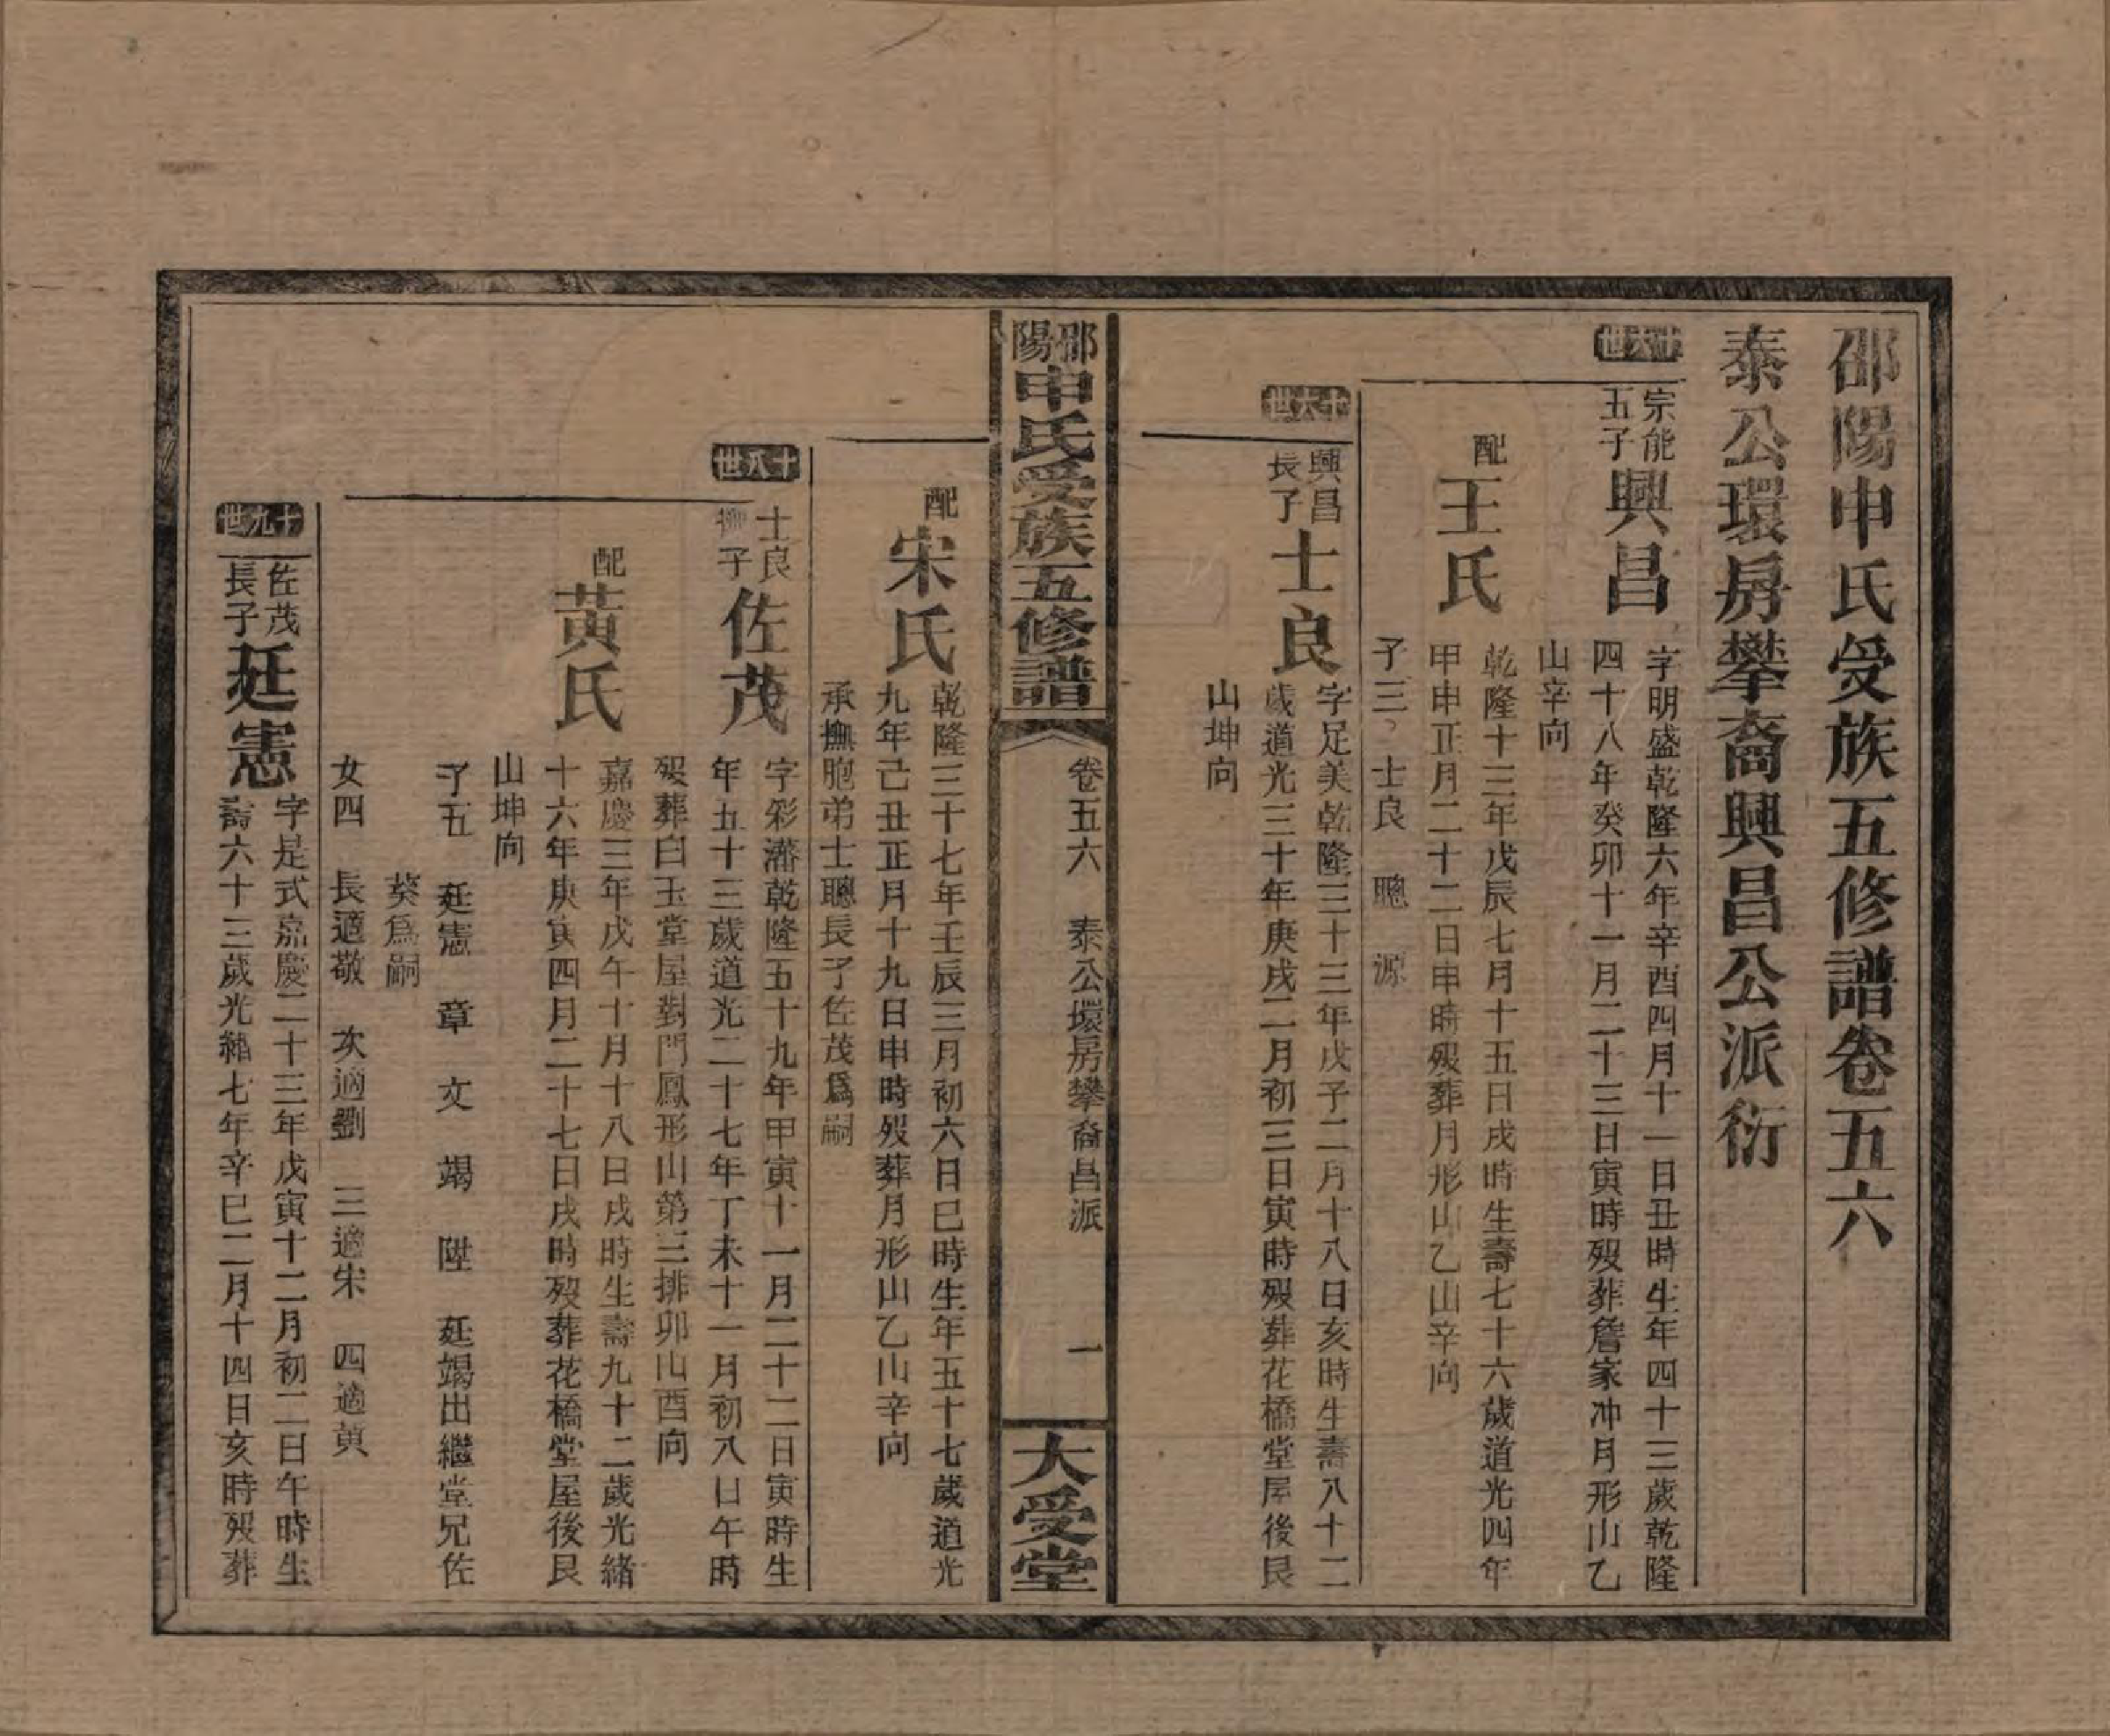 邵陽申氏受族五修譜卷五六
泰公環房攀裔興昌公派衍
十六世
宗能五子
興昌
字明盛乾隆六年辛酉四月十一日丑時生年四十三歲乾隆
四十八年癸卯十一月二十三日寅時歿葬詹家冲月形山乙
山辛向
配
王氏
乾隆十三年戊辰七月十五日戌時生壽七十六歲道光四年
甲申正月二十二日申時歿葬月形山乙山辛向
子三 士良 聰 源
世
興昌長子
士良
字足美乾隆三十三年戊子二月十八日亥時生壽八十二
歲道光三十年庚戌二月初三日寅時歿葬花橋堂屋後艮
山坤向
邵陽申氏受族五修譜
卷五六 泰公環房攀裔昌派 一
大受堂
配
宋氏
乾隆三十七年壬辰三月初六日巳時生年五十七歲道光
九年己丑正月十九日申時歿葬月形山乙山辛向
承撫胞弟士聰長子佐茂爲嗣
十八世
士良撫子
佐茂
字彩藩乾隆五十九年甲寅十一月二十二日寅時生
年五十三歲道光二十七年丁未十一月初八日午時
歿葬白玉堂屋對門鳳形山第三排卯山酉向
配
黃氏
嘉慶三年戊午十月十八日戌時生壽九十二歲光緒
十六年庚寅四月二十七日戌時歿葬花橋堂屋後艮
山坤向
子五 廷憲 章 文 竭 陞 廷竭出繼堂兄佐
葵爲嗣
女四 長適敬 次適劉 三適宋 四適黃
十九世
佐茂長子
廷憲
字是式嘉慶二十三年戊寅十二月初二日午時生
壽六十三歲光緒七年辛巳二月十四日亥時歿葬